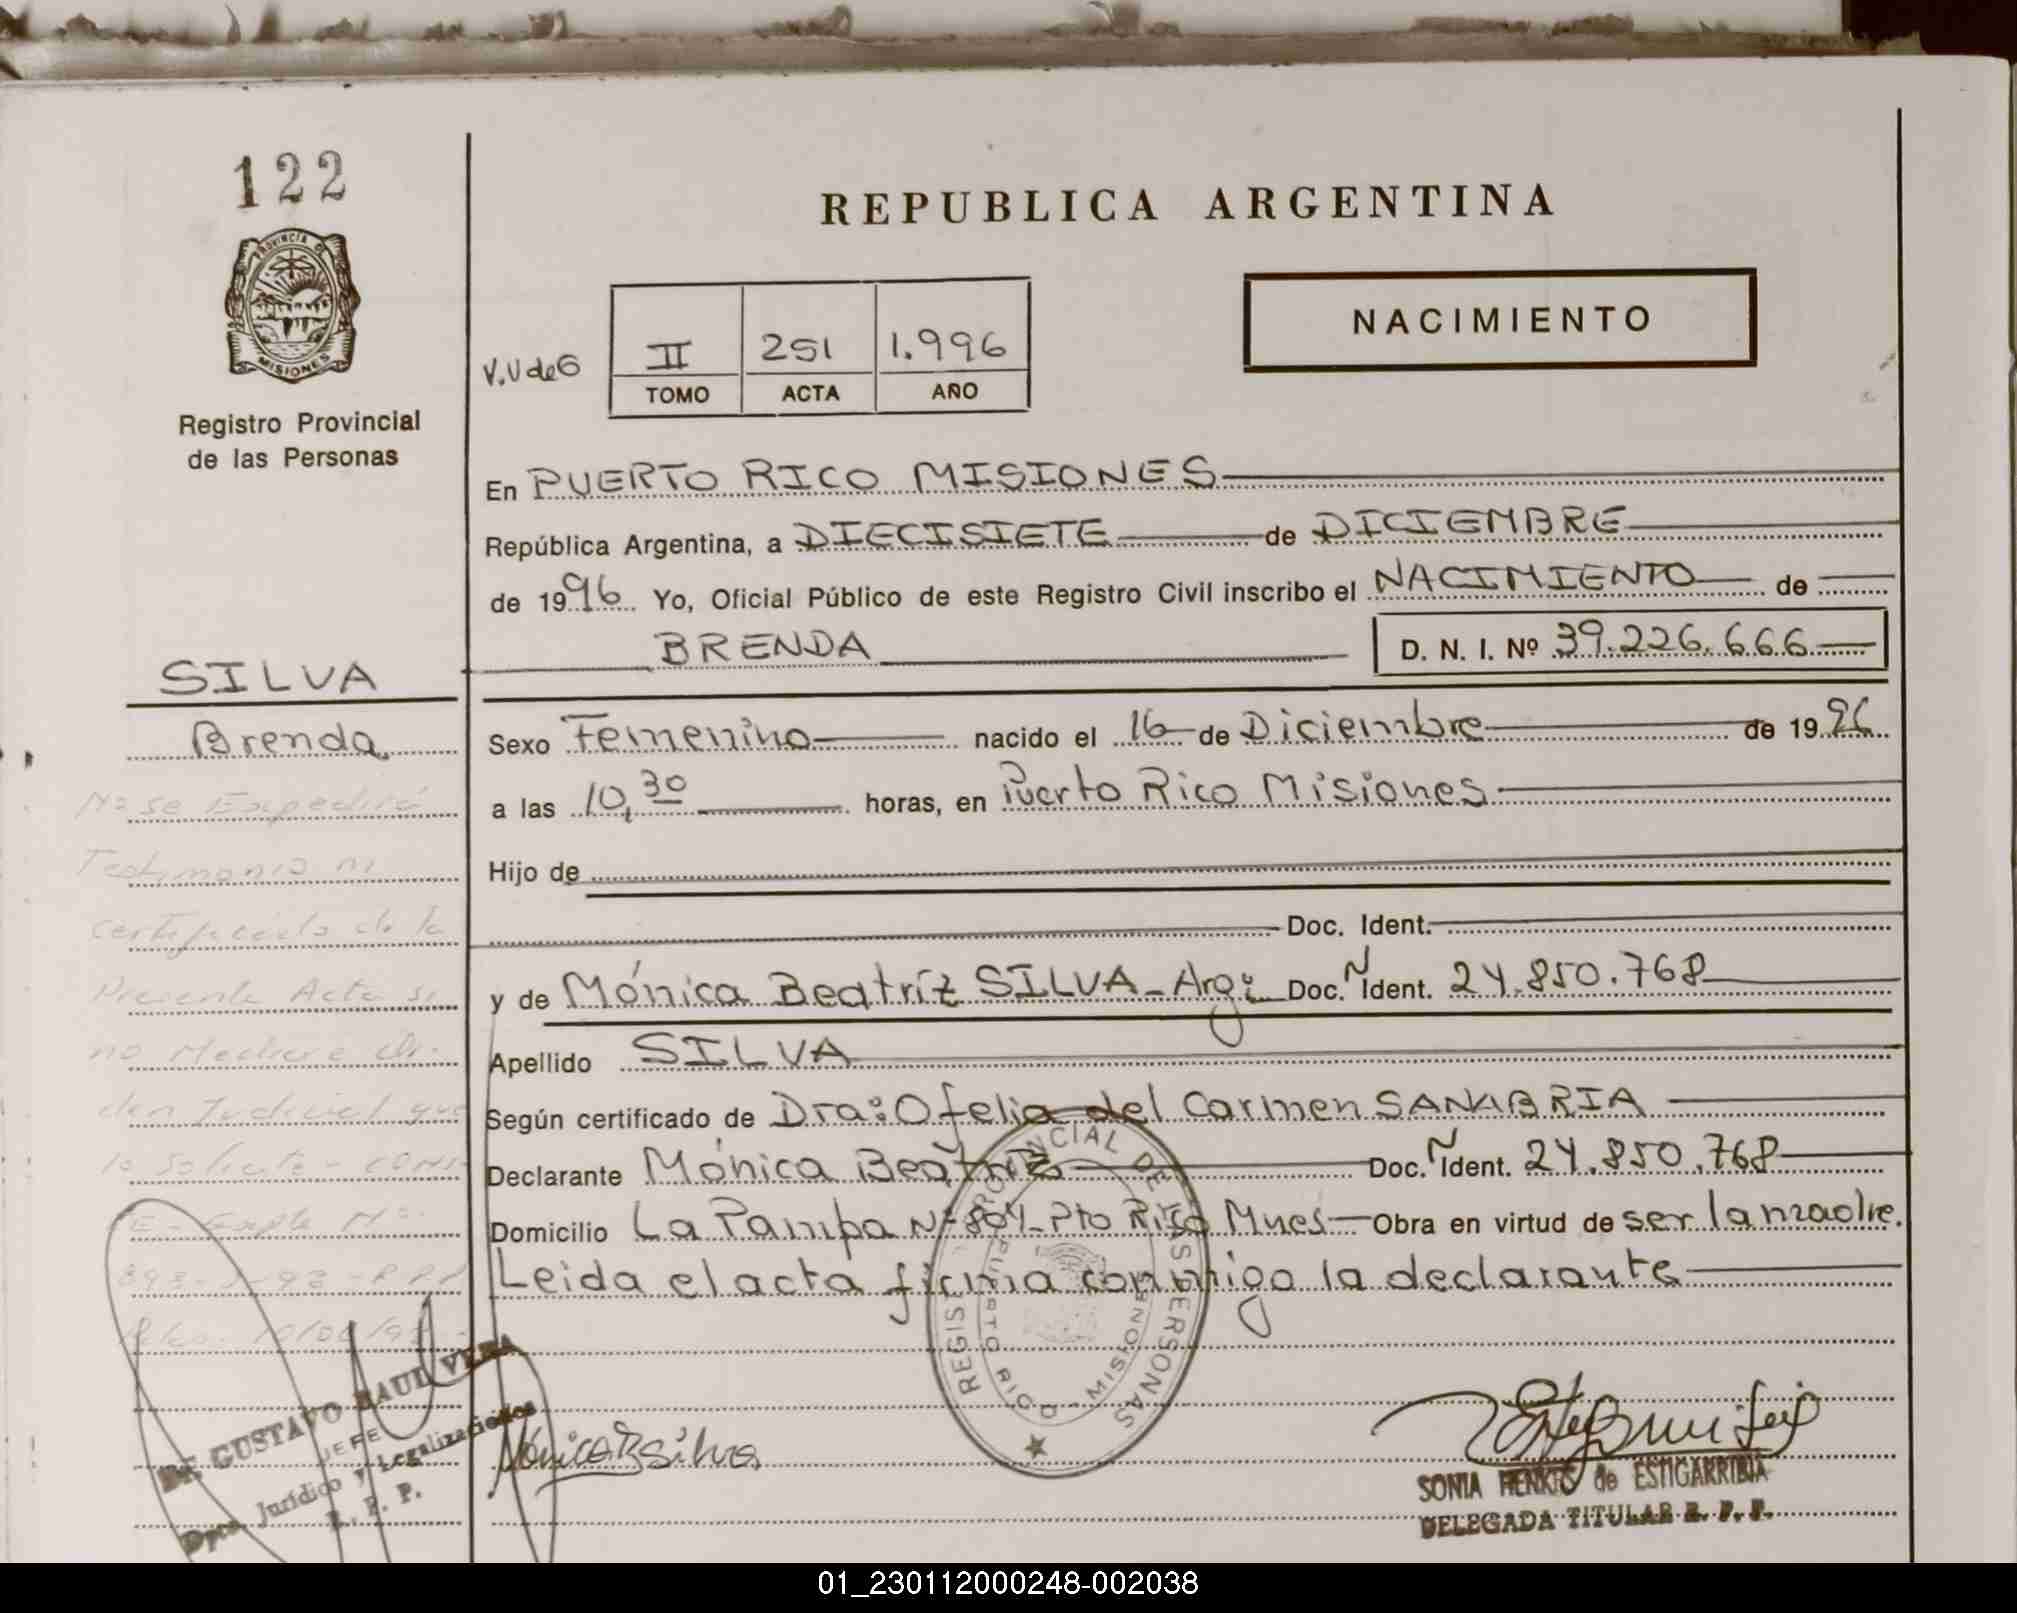 122
PROVINCIA DE
MISIONES
Registro Provincial
de las Personas
REPUBLICA ARGENTINA
NACIMIENTO
V.U de G
II 251 1.996
TOMO ACTA AÑO
En PUERTO RICO MISIONES
República Argentina, a DIECISIETE de DICIEMBRE
de 1996 Yo, Oficial Público de este Registro Civil inscribo el NACIMIENTO de
BRENDA D. N. I. Nº 39.226.666
SILVA
Brenda
Sexo Femenino nacido el 16 de Diciembre de 1996
a las 10,30 horas, en Puerto Rico Misiones
Hijo de
Doc. Ident.
y de Mónica Beatríz SILVA - Arg: Doc. Ident. 24.850.768
Apellido SILVA
Según certificado de Dra: Ofelia del Carmen SANABRIA
Declarante Mónica Beatriz Doc. Ident. 24.850.768
Domicilio La Pampa Nº 804 - Pto Rico Mnes Obra en virtud de ser la madre.
Leida el acta firma conmigo la declarante
No se Expedirá
Testimonio ni
certificado de la
Presente Acta si
no Mediare Or-
den Judicial que
lo solicite - CONS-
TE - Expte Nº
REGISTRO PROVINCIAL DE LAS PERSONAS
PUERTO RICO - MISIONES
Mónica B Silva
DR GUSTAVO RAUL VERA
JEFE
Dpto Jurídico y Legalizaciones
R. P. P.
SONIA HENKIS de ESTIGARRIBIA
DELEGADA TITULAR R. P. P.
01_230112000248-002038